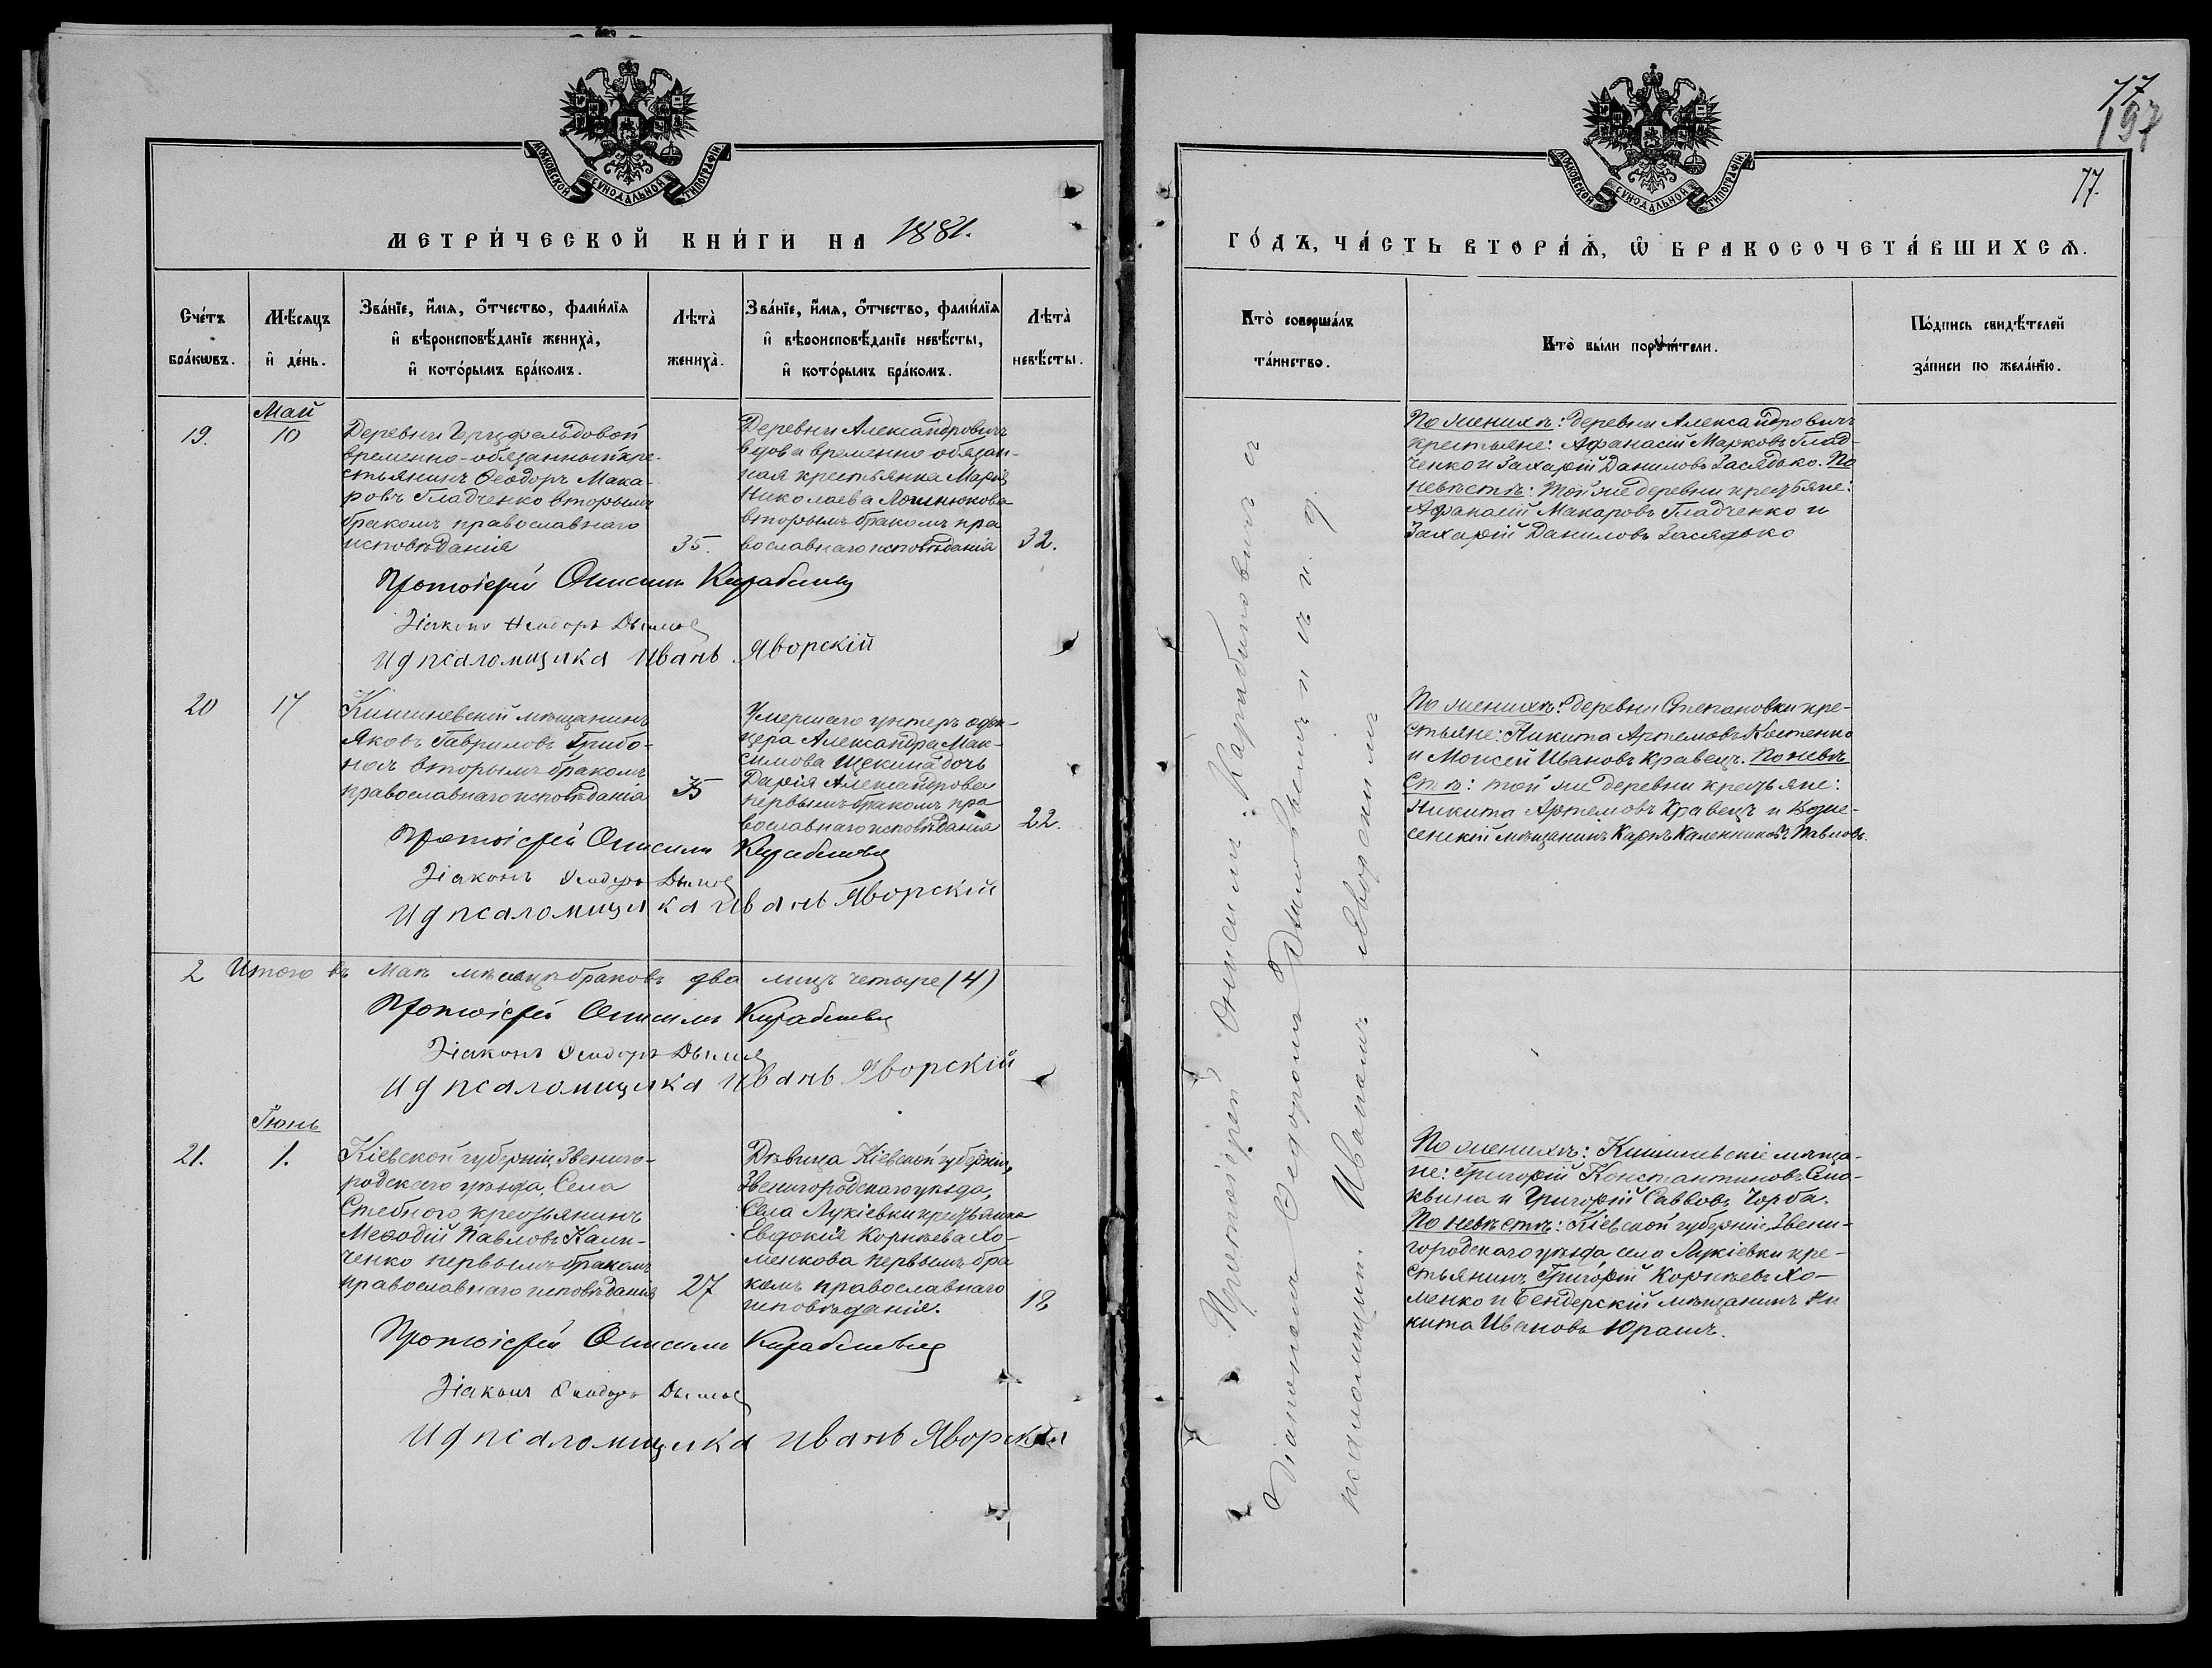 МОСКОВСКОЙ СѴНОДАЛЬНОЙ ТИПОГРАФІИ
МЕТРИ́ЧЕСКОЙ КНИ́ГИ НА 1881.
Сче́тъ
бра́кѡвъ.
Мѣ́сяцъ
и҆ де́нь.
Зва́нїе, и҆́мя, ѻ҆́тчество, фами́лїя
и҆ вѣроисповѣ́данїе жениха̀,
и҆ кото́рымъ бра́комъ.
Лѣта̀
жениха̀.
Зва́нїе, и҆́мя, ѻ҆́тчество, фами́лїя
и҆ вѣроисповѣ́данїе невѣ́сты,
и҆ кото́рымъ бра́комъ.
Лѣта̀
невѣ́сты.
19.
Май
10
Деревни
временно-обязанный кре-
стьянинъ Ѳеодоръ Мака-
ровъ Гладченко вторымъ
бракомъ православнаго
исповѣданія
35.
Деревни Александровичъ
вдова временно обязан-
ная крестьянка Марія
Николаева
вторымъ бракомъ пра
вославнаго исповѣданія
32.
Протоіерей Онисимъ
Діаконъ Ѳеодоръ
И д псаломщика Иванъ Яворскій
20
17
Кишиневскій мѣщанинъ
Яковъ Гавриловъ Грибо-
вторымъ бракомъ
православнаго исповѣданія
35
Умершаго унтеръ офи-
цера Александра Мак-
симова Щекина дочь
Дарія Александрова
первымъ бракомъ пра
вославнаго исповѣданія
22.
Протоіерей Онисимъ
Діаконъ Ѳеодоръ
И д псаломщика Иванъ Яворскій
2 Итого въ Маѣ мѣсяцѣ браковъ два лицъ четыре (4)
Протоіерей Онисимъ
Діаконъ Ѳеодоръ
И д псаломщика Иванъ Яворскій
21.
Іюнь
1.
Кіевской губерніи, Звениго-
родскаго уѣзда, Села
Стебного крестьянинъ
Меѳодій Павловъ Кали-
ченко первымъ бракомъ
православнаго исповѣданія
27
Дѣвица Кіевской губерніи,
Звенигородскаго уѣзда,
Села Лукіевки крестьянка
Евдокія Корнѣева Хо-
менкова первымъ бра
комъ православнаго
исповѣданія.
18
Протоіерей Онисимъ
Діаконъ Ѳеодоръ
И д псаломщика Иванъ Яворскій
77
197
77.
МОСКОВСКОЙ СѴНОДАЛЬНОЙ ТИПОГРАФІИ
ГО́ДЪ, ЧА́СТЬ ВТОРА́Ѧ, Ѡ҆ БРАКОСОЧЕТА́ВШИХСѦ.
Кто̀ соверша́лъ
та́инство.
Кто̀ бы́ли порꙋчи́тели.
По́дпись свидѣ́телей
за́писи по жела́нїю.
Протоіерей Онисимъ Карабиновичъ съ
Діакономъ Ѳедоромъ и и. д.
псаломщика Иваномъ Яворскимъ
По женихѣ: деревни Александровичъ
крестьяне: Афанасій Марковъ Глад-
ченко и Захарій Даниловъ Засядько. По
невѣстѣ: той же деревни крестьяне:
Афанасій Макаровъ Гладченко и
Захарій Даниловъ Засядько
По женихѣ: деревни Степановки кре-
стьяне: Никита Артемовъ Костенко
и Моисей Ивановъ Кравецъ. По невѣ-
стѣ: той же деревни крестьяне:
Никита Артемовъ Кравецъ и Возне-
сенскій мѣщанинъ Карпъ Павловъ.
По женихѣ: Кишиневскіе мѣща-
не: Григорій Константиновъ
и Григорій Савовъ Чорба.
По невѣстѣ: Кіевской губерніи, Звени-
городскаго уѣзда села Лукіевки кре-
стьянинъ Григорій Корнѣевъ Хо-
менко и Бендерскій мѣщанинъ Ни
кита Ивановъ Юрашъ.